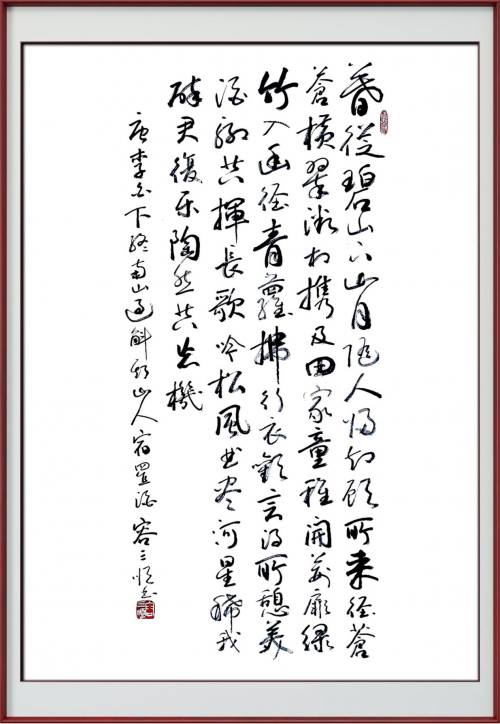 暮從碧山下山月随人归却顾所来径蒼
蒼横翠微相携及田家童稚開荆扉緑
竹入幽径青蘿拂行衣歡言得所憩美
酒聊共揮長歌吟松風曲尽河星稀我
醉君復乐陶然共忘機
唐李白下终南山过斛斯山人宿置酒